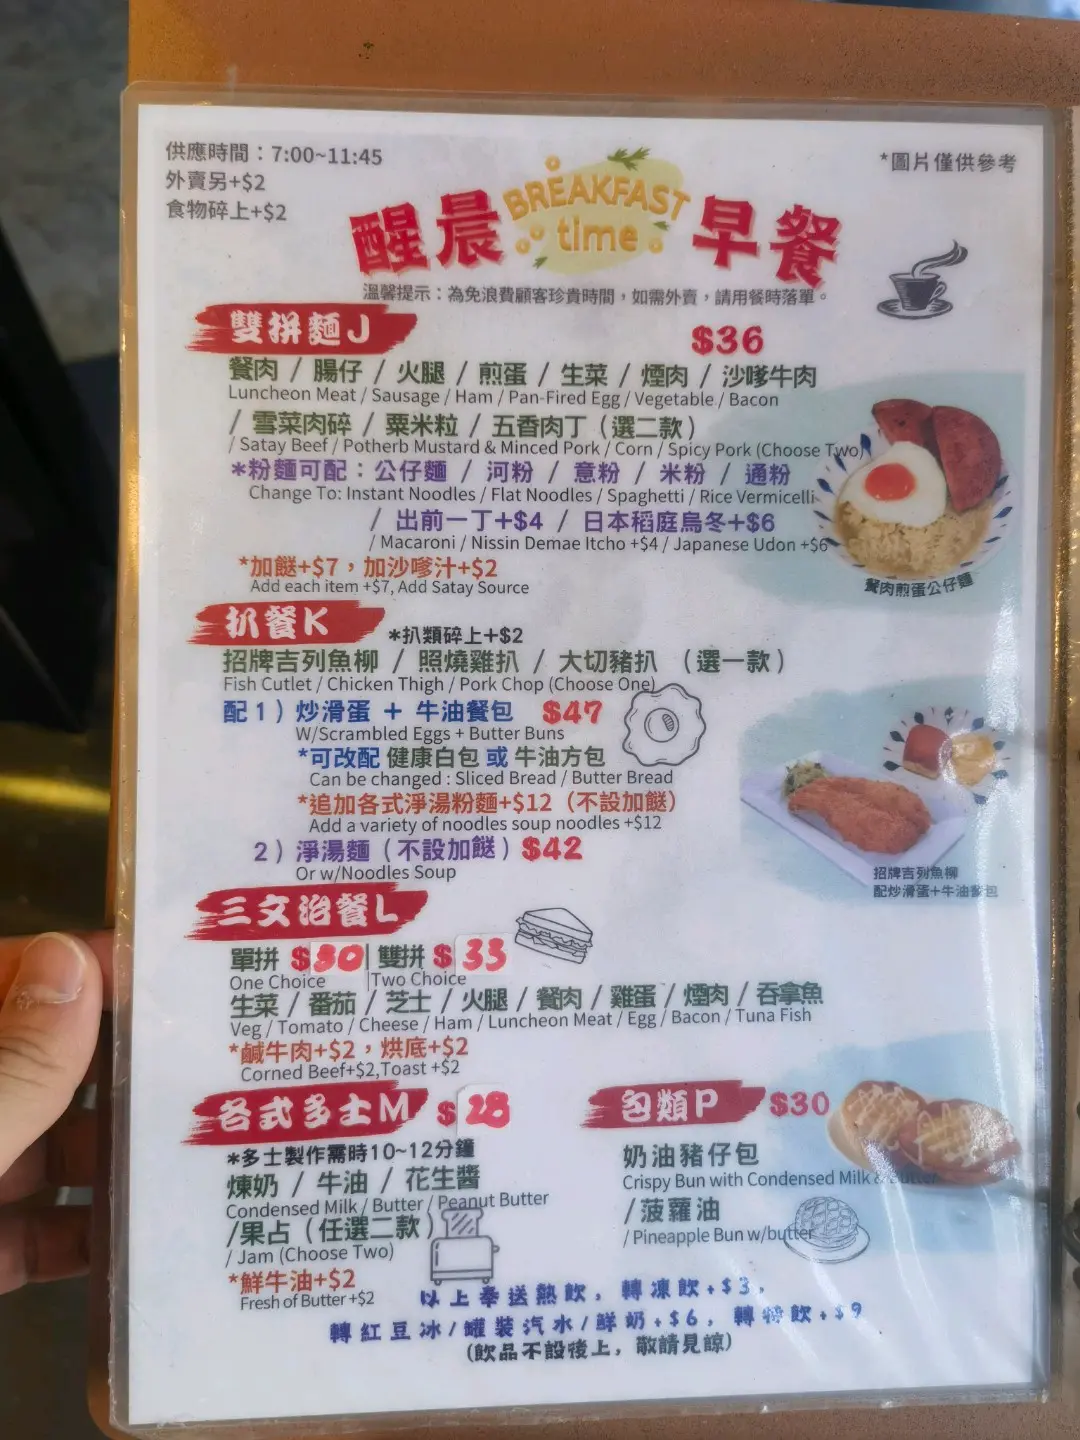 供應時間：7:00~11:45
外賣另+$2
食物碎上+$2
*圖片僅供參考
醒晨 BREAKFAST time 早餐
溫馨提示：為免浪費顧客珍貴時間，如需外賣，請用餐時落單。
雙拼麵J $36
餐肉 / 腸仔 / 火腿 / 煎蛋 / 生菜 / 煙肉 / 沙嗲牛肉
Luncheon Meat / Sausage / Ham / Pan-Fired Egg / Vegetable / Bacon
/ 雪菜肉碎 / 粟米粒 / 五香肉丁（選二款）
/ Satay Beef / Potherb Mustard & Minced Pork / Corn / Spicy Pork (Choose Two)
*粉麵可配：公仔麵 / 河粉 / 意粉 / 米粉 / 通粉
Change To: Instant Noodles / Flat Noodles / Spaghetti / Rice Vermicelli
/ 出前一丁+$4 / 日本稻庭烏冬+$6
/ Macaroni / Nissin Demae Itcho +$4 / Japanese Udon +$6
*加餸+$7，加沙嗲汁+$2
Add each item +$7, Add Satay Source
餐肉煎蛋公仔麵
扒餐K *扒類碎上+$2
招牌吉列魚柳 / 照燒雞扒 / 大切豬扒 （選一款）
Fish Cutlet / Chicken Thigh / Pork Chop (Choose One)
配 1）炒滑蛋 + 牛油餐包 $47
W/Scrambled Eggs + Butter Buns
*可改配 健康白包 或 牛油方包
Can be changed : Sliced Bread / Butter Bread
*追加各式淨湯粉麵+$12（不設加餸）
Add a variety of noodles soup noodles +$12
2）淨湯麵（不設加餸）$42
Or w/Noodles Soup
招牌吉列魚柳
配炒滑蛋+牛油餐包
三文治餐L
單拼 $30 | 雙拼 $ 33
One Choice | Two Choice
生菜 / 番茄 / 芝士 / 火腿 / 餐肉 / 雞蛋 / 煙肉 / 吞拿魚
Veg / Tomato / Cheese / Ham / Luncheon Meat / Egg / Bacon / Tuna Fish
*鹹牛肉+$2，烘底+$2
Corned Beef+$2,Toast +$2
各式多士M $ 28
*多士製作需時10~12分鐘
煉奶 / 牛油 / 花生醬
Condensed Milk / Butter / Peanut Butter
/果占（任選二款）
/ Jam (Choose Two)
*鮮牛油+$2
Fresh of Butter +$2
包類P $30
奶油豬仔包
Crispy Bun with Condensed Milk & Butter
/ 菠蘿油
/ Pineapple Bun w/butter
以上奉送熱飲，轉凍飲+$3，
轉紅豆冰/罐裝汽水/鮮奶+$6，轉特飲+$9
(飲品不設後上，敬請見諒)